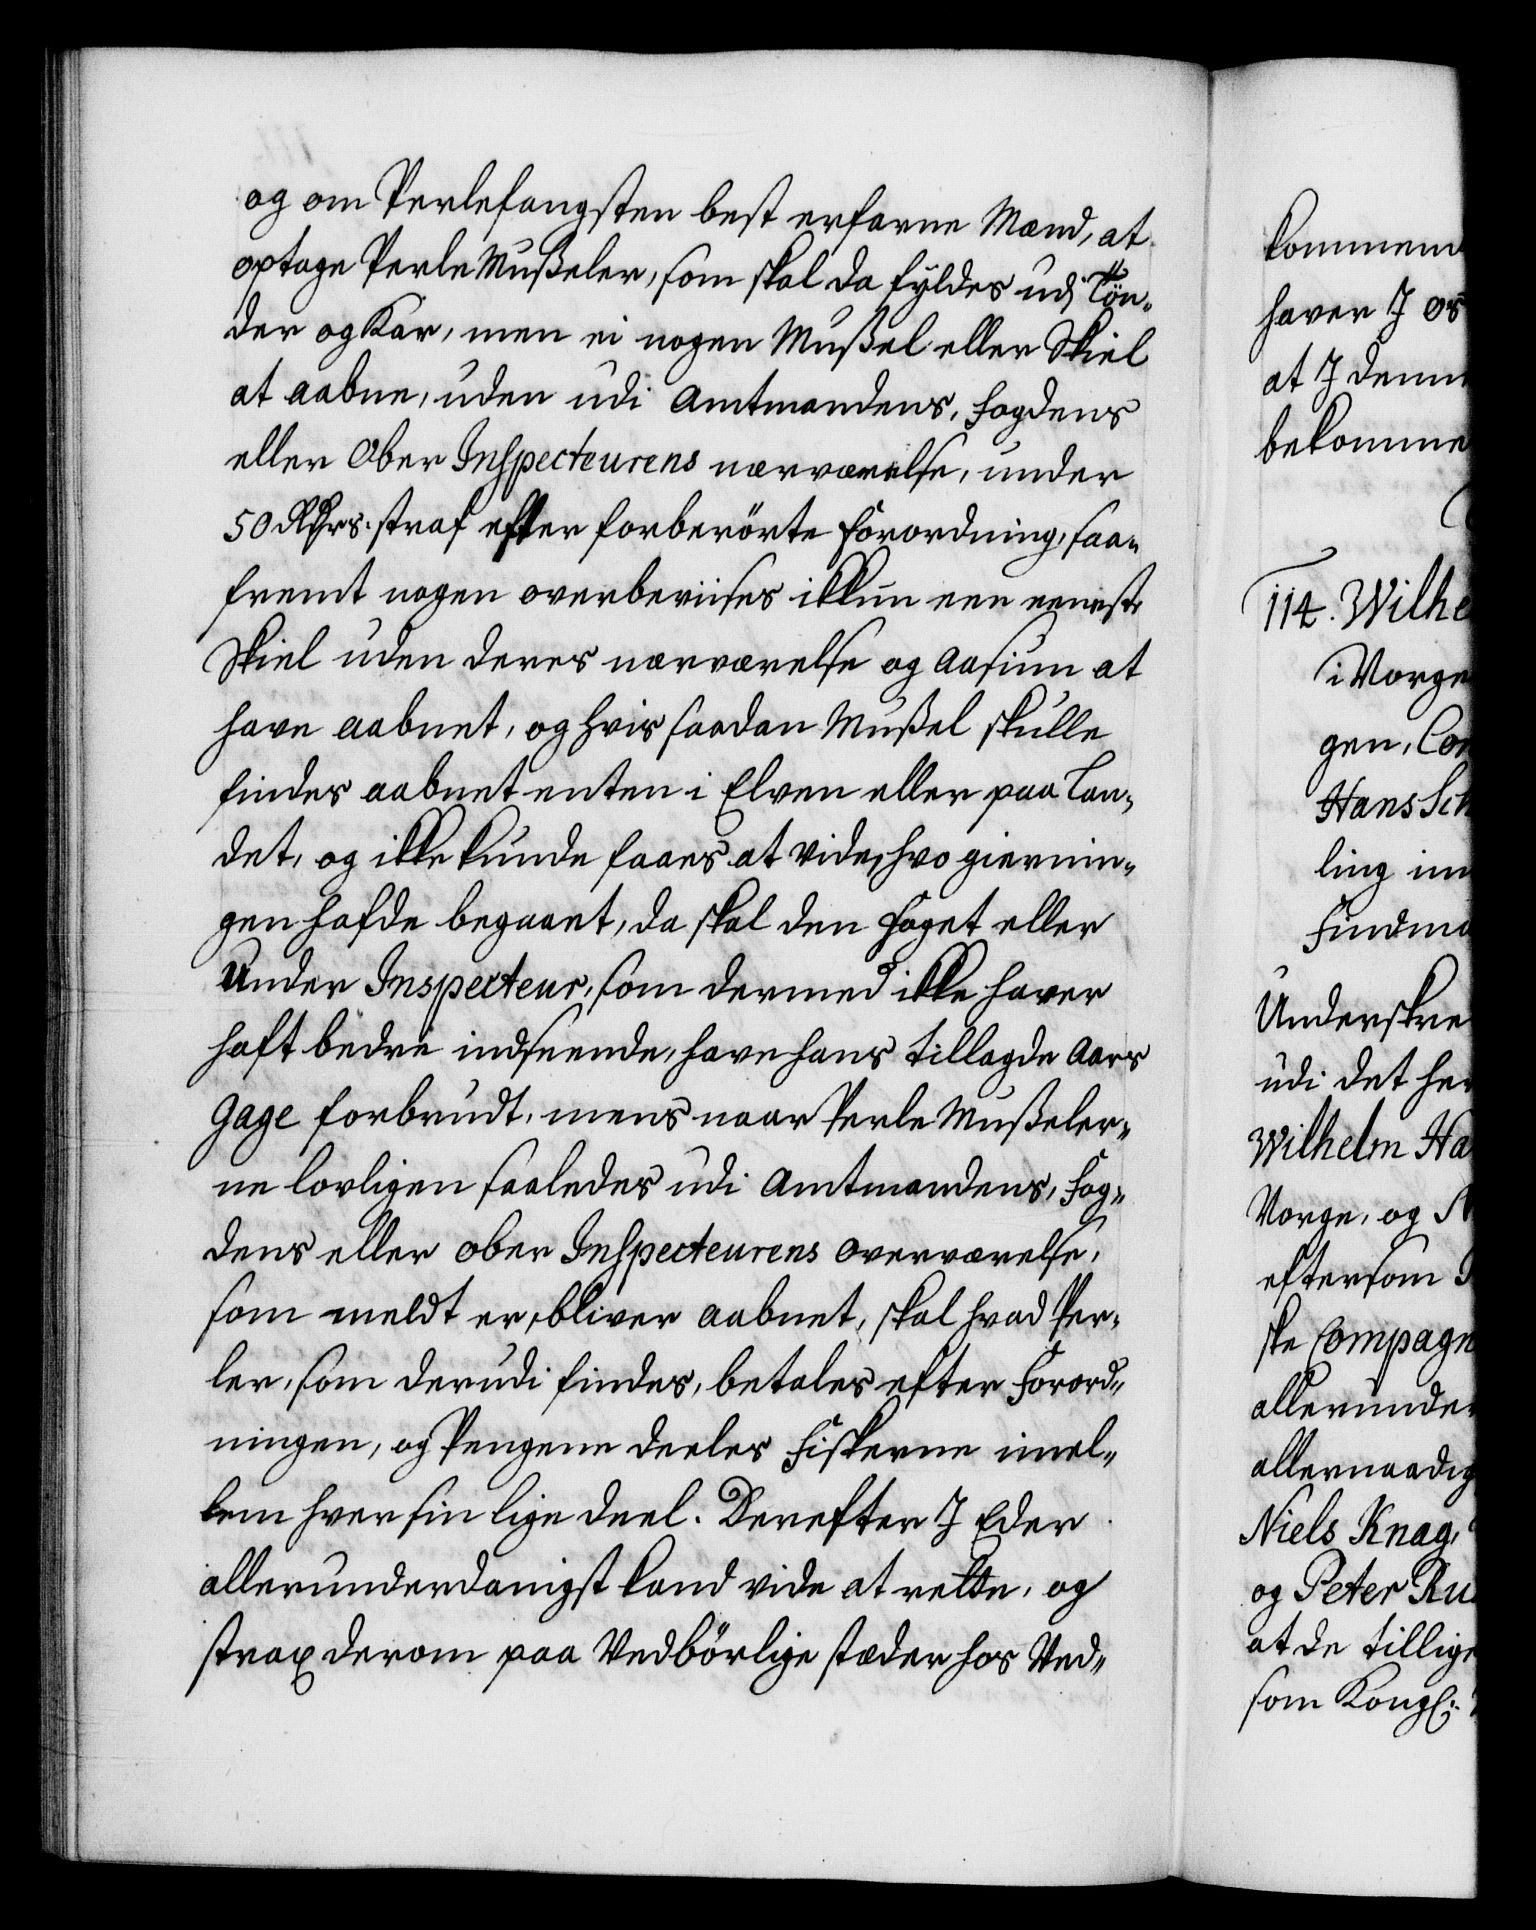 og om Perlefangsten best erfarne Mænd, at
optage Perle Mußeler, som skal da fyldes udj Tön-
der og Kar, men ei nogen Mußel eller Skiel
at aabne, uden udi Amtmandens, Fogdens
eller Ober Inspecteurens nærværelse, under
50 Rdrs. straf efter forberörte Forordning, saa-
fremt nogen overbeviises ikkun een eeneste
Skiel uden deres nærværelse og Aasiun at
have aabnet, og hvis saadan Mußel skulle
findes aabnet enten i Elven eller paa Lan-
det, og ikke kunde faaes at vide, hvo giernin-
gen hafde begaaet, da skal den Foget eller
Under Inspecteur, som dermed ikke haver
haft bedre indseende, have hans tillagde Aars
Gage forbrudt, mens naar Perle Mußeler-
ne lovligen saaledes udi Amtmandens, Fog-
dens eller ober Inspecteurens overværelse,
som meldt er, bliver aabnet, skal hvad Per-
ler, som derudi findes, betales efter Forord-
ningen, og Pengene deeles Fiskerne imel-
lem hver sin lige deel. Derefter J Eder
allerunderdanigst kand vide at rette, og
strax derom paa Vedbörlige stæder hos Ved-
kommend
haver J os
at J denne
bekomme
114. Wilhe
i Norge
gen, Con
Hans Sch
ling im
Findma
Underskre
udi det her
Wilhelm Ha
Norge, og N
eftersom
ske Compagn
allerunder
allernaadig
Niels Knag,
og Peter Ru
at de tillige
som Kongl: